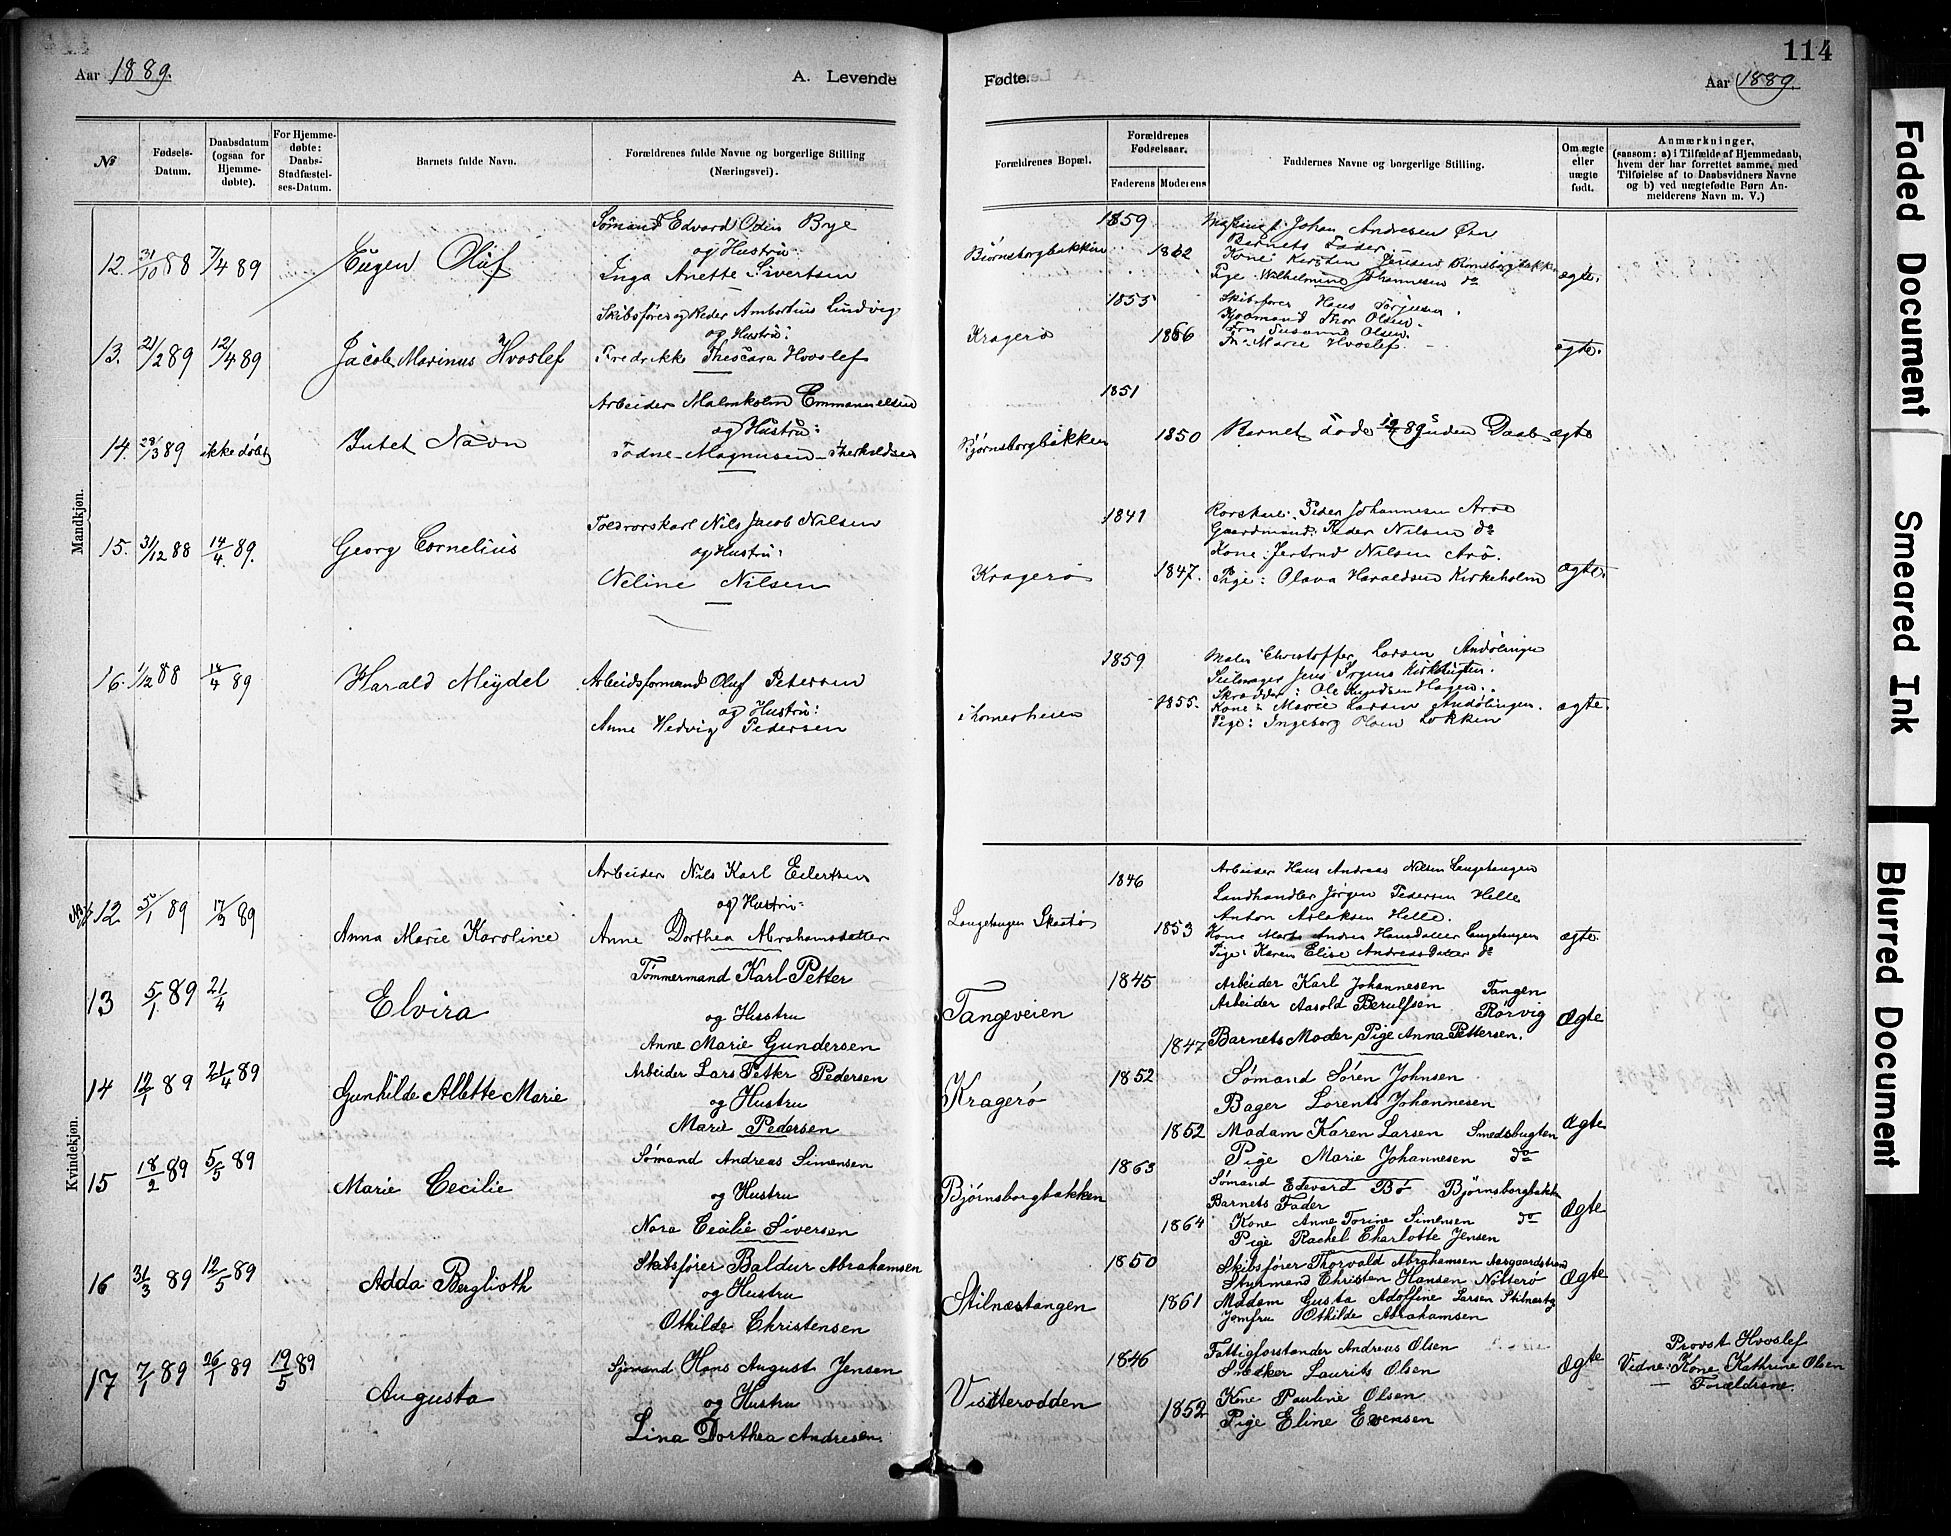 114
Aar 1889.
A. Levende
Fødte.
Aar 1889.
No
Fødsels-Datum.
Daabsdatum (ogsaa for Hjemme-døbte).
For Hjemme-døbte: Daabs-Stadfæstel-ses-Datum.
Barnets fulde Navn.
Forældrenes fulde Navne og borgerlige Stilling
(Næringsvei).
Forældrenes Bopæl.
Forældrenes Fødselsaar.
Faderens
Moderens
Faddernes Navne og borgerlige Stilling.
Om ægte eller uægte født.
Anmærkninger,
(saasom: a) i Tilfælde af Hjemmedaab,
hvem der har forrettet samme, med
Tilføielse af to Daabsvidners Navne
og b) ved uægtefødte Børn An-
melderens Navn m. V.)
Mandkjøn.
12. 31/10 88 7/4 89 Eugen Oluf
Sømand Edvard Odin Bye
og Hustru:
Inga Anette Sivertsen
Bjørnsborgbakken 1859 1862
Johan Andresen Øen
Barnets Fader
Kone Kirsten Jensen Bjørnsborgbakken
Pige Wilhelmine Johannesen do
ægte.
13. 21/2 89 12/4 89 Jacob Marinus Hvoslef
Skibsfører og Reder Ambortius Lindvig
og Hustru:
Fredrikke Theocara Hvoslef
Kragerø 1855 1866
Skibsfører Hans Jørgensen.
Kjøbmand Thor Olsen.
Fru Susanne Olsen.
Fr. Marie Hvoslef.
ægte.
14. 28/3 89 ikke døbt Intet Navn
Arbeider Malmkolm Emmanuelsen
og Hustru:
Todne Magnusen Therkeldsen
Bjørnsborgbakken 1851 1850
Barnet døde 19/4 89 uden Daab
ægte
15. 31/12 88 14/4 89. Georg Cornelius
Toldrorskarl Nils Jacob Nilsen
og Hustru:
Neline Nilsen
Kragerø 1841 1847.
Rorskarl: Peder Johannesen Arøe
Gaardmand: Peder Nilsen do
Kone: Jertrud Nilsen Arø.
Pige: Olava Haraldsen Kirkeholm
ægte.
16. 1/12 88 14/4 89 Harald Meydel
Arbeidsformand Oluf Petersen
og Hustru:
Anne Hedvig Pedersen
1859 1855.
Maler Christoffer Larsen Andølingen
Seilmager Jens
Skrædder: Ole Knudsen Hagen.
Kone: Marie Larsen Andølingen.
Pige: Ingeborg Olsen Løkken
ægte.
Kvindekjøn.
12 5/1 89 17/3 89 Anna Marie Karoline
Arbeider Nils Karl Eilertsen
og Hustru:
Anne Dorthea Abrahamsdatter
Langetangen Skaatø 1846 1853
Arbeider Hans Andreas Nilsen Langetangen
Landhandler Jørgen Pedersen Helle
Anton Aslaksen Helle.
Kone Marte Andrea Hansdatter Langetangen
Pige: Karen Elise Andreasdatter do
ægte.
13 5/1 89 21/4 Elvira
Tømmermand Karl Petter
og Husstru
Anne Marie Gundersen
Tangeveien 1845 1847
Arbeider Karl Johannesen Tangen
Arbeider Aasold Berulfsen Rørvig
Barnets Moder, Pige Anna Pettersen.
Ægte
14 12/1 89 21/4 89 Gunhilde Albette Marie
Arbeider Lars Petter Pedersen
og Hustru
Marie Pedersen
Kragerø 1852 1852
Sømand Søren Johnsen
Bager Lorents Johannesen
Madam Karen Larsen Smedsbugten
Pige Marie Johannesen do
Ægte
15 18/2 89 5/5 89 Marie Cecilie
Sømand Andreas Simensen
og Hustru
Nora Cecilie Siversen
Bjørnsborgbakken 1863 1864
Sømand Edevard Bø Bjørnsborgbakk
Barnets Fader
Kone Anne Torine Simensen do
Pige Rachel Charlotte Jensen
Ægte
16 31/3 89 12/5 89 Adda Berglioth
Skibsfører Baldur Abrahamsen
og Hustru
Othilde Christensen
Stilnæstangen 1850 1861
Skibsfører Thorvald Abrahamsen Aasgaardstrand
Styrmand Christen Hansen Nitterø
Madam Gusta Adolfine Larsen Stilnæstg
Jomfru Othilde Abrahamsen
Ægte
17 7/1 89 26/1 89 19/5 89 Augusta
Sjømand Hans August Jensen
og Hustru
Lina Dorthea Andresen.
Visitterodden 1846 1852
Fattigforstander Andreas Olsen
Snedker Laurits Olsen
Kone Pauline Olsen
Pige Eline Evensen
Ægte
Provst Hvoslef
Vidne: Kone Kathrine Olsen
Forældrene.
Faded Document
Smeared Ink
Blurred Document